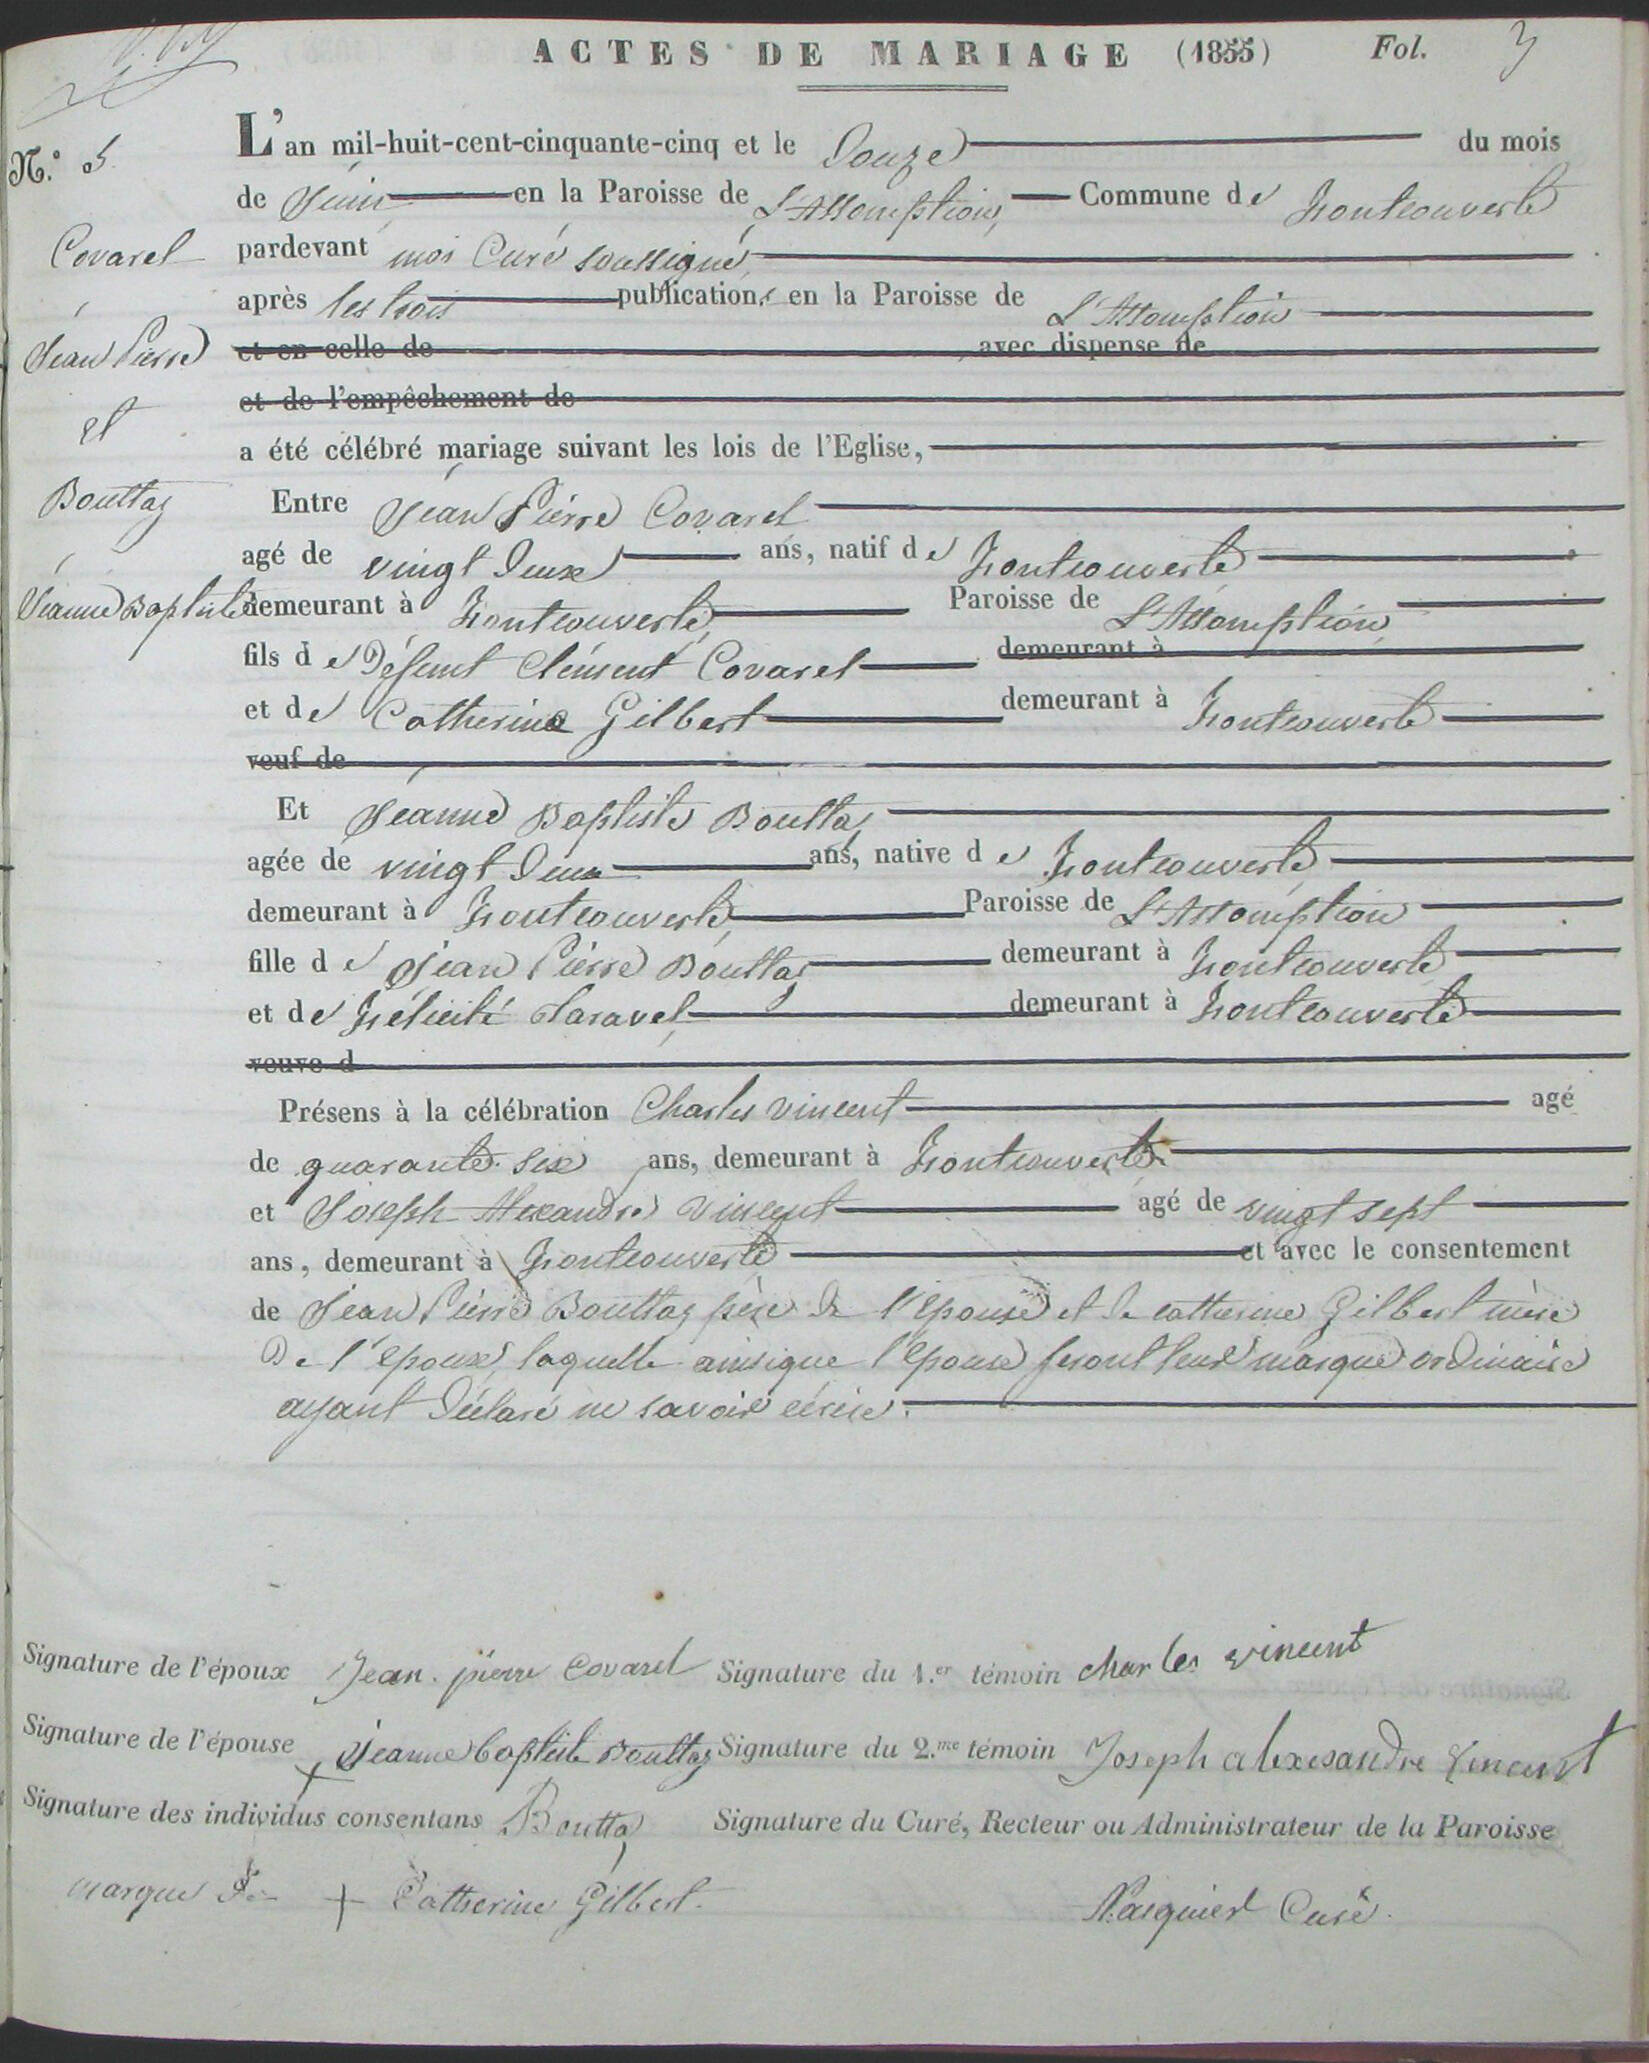 ACTES DE MARIAGE (1855) Fol. 3
N.° 5
L'an mil-huit-cent-cinquante-cinq et le Douze du mois
de Juin en la Paroisse de L'Assomption, Commune de Fontcouverte
Covarel
pardevant moi Curé soussigné,
après les trois publications en la Paroisse de L'Assomption
Jean Pierre
et en celle de avec dispense de
et de l'empêchement de
et
a été célébré mariage suivant les lois de l'Eglise,
Bouttaz
Entre Jean Pierre Covarel
agé de vingt deux ans, natif de Fontcouverte
Jeanne Baptiste
demeurant à Fontcouverte, Paroisse de L'Assomption,
fils de Défunt Clément Covarel demeurant à
et de Catherine Gilbert demeurant à Fontcouverte
veuf de
Et Jeanne Baptiste Bouttaz
agée de vingt Deux ans, native de Fontcouverte
demeurant à Fontcouverte, Paroisse de L'Assomption
fille de Jean Pierre Bouttaz demeurant à Fontcouverte
et de Félicité Claravel demeurant à Fontcouverte
veuve d
Présens à la célébration Charles Vincent agé
de quarante six ans, demeurant à Fontcouverte
et Joseph Alexandre Vincent agé de vingt sept
ans, demeurant à Fontcouverte et avec le consentement
de Jean Pierre Bouttaz père de l'épouse et de catherine Gilbert mère
De l'époux, laquelle ainsique l'épouse feront leur marque ordinaire
ayant Déclaré ne savoir écrire.
Signature de l'époux Jean. pierre Covarel Signature du 1.er témoin charles vincent
Signature de l'épouse + Jeanne baptiste Bouttaz Signature du 2.me témoin Joseph alexesandre Vincent
Signature des individus consentans Bouttaz Signature du Curé, Recteur ou Administrateur de la Paroisse
marque De + Catherine Gilbert. Pasquier Curé.